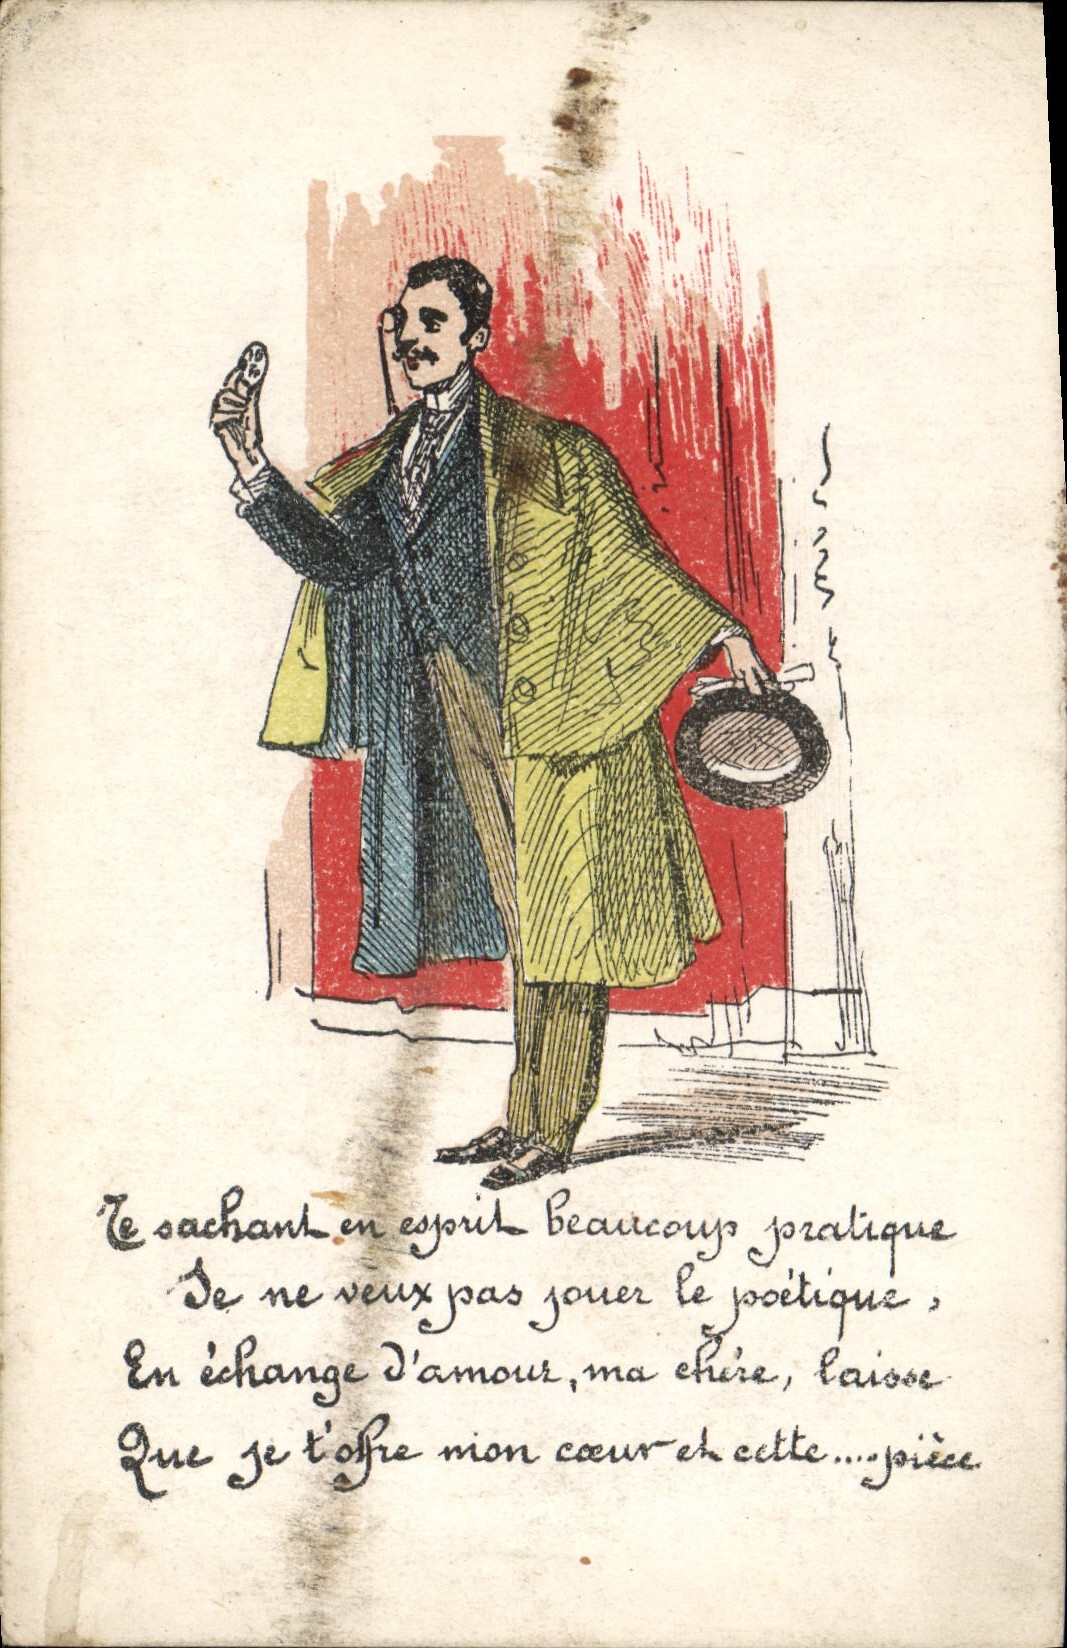 Te sachant en esprit beaucoup pratique
Je ne veux pas jouer le poétique,
En échange d'amour, ma chère, laisse
Que je t'offre mon cœur et cette....pièce